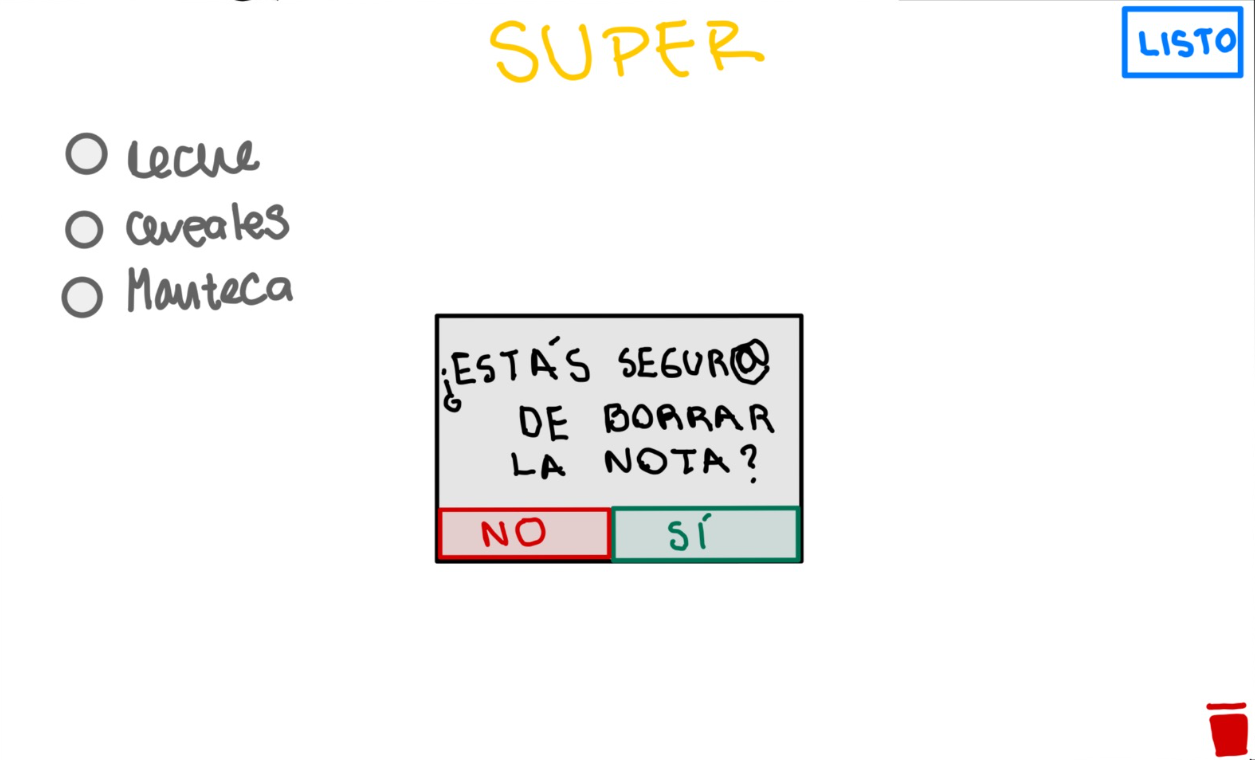 SUPER
LISTO
Leche
Cereales
Manteca
¿ESTÁS SEGUR@
DE BORRAR
LA NOTA?
NO
SÍ